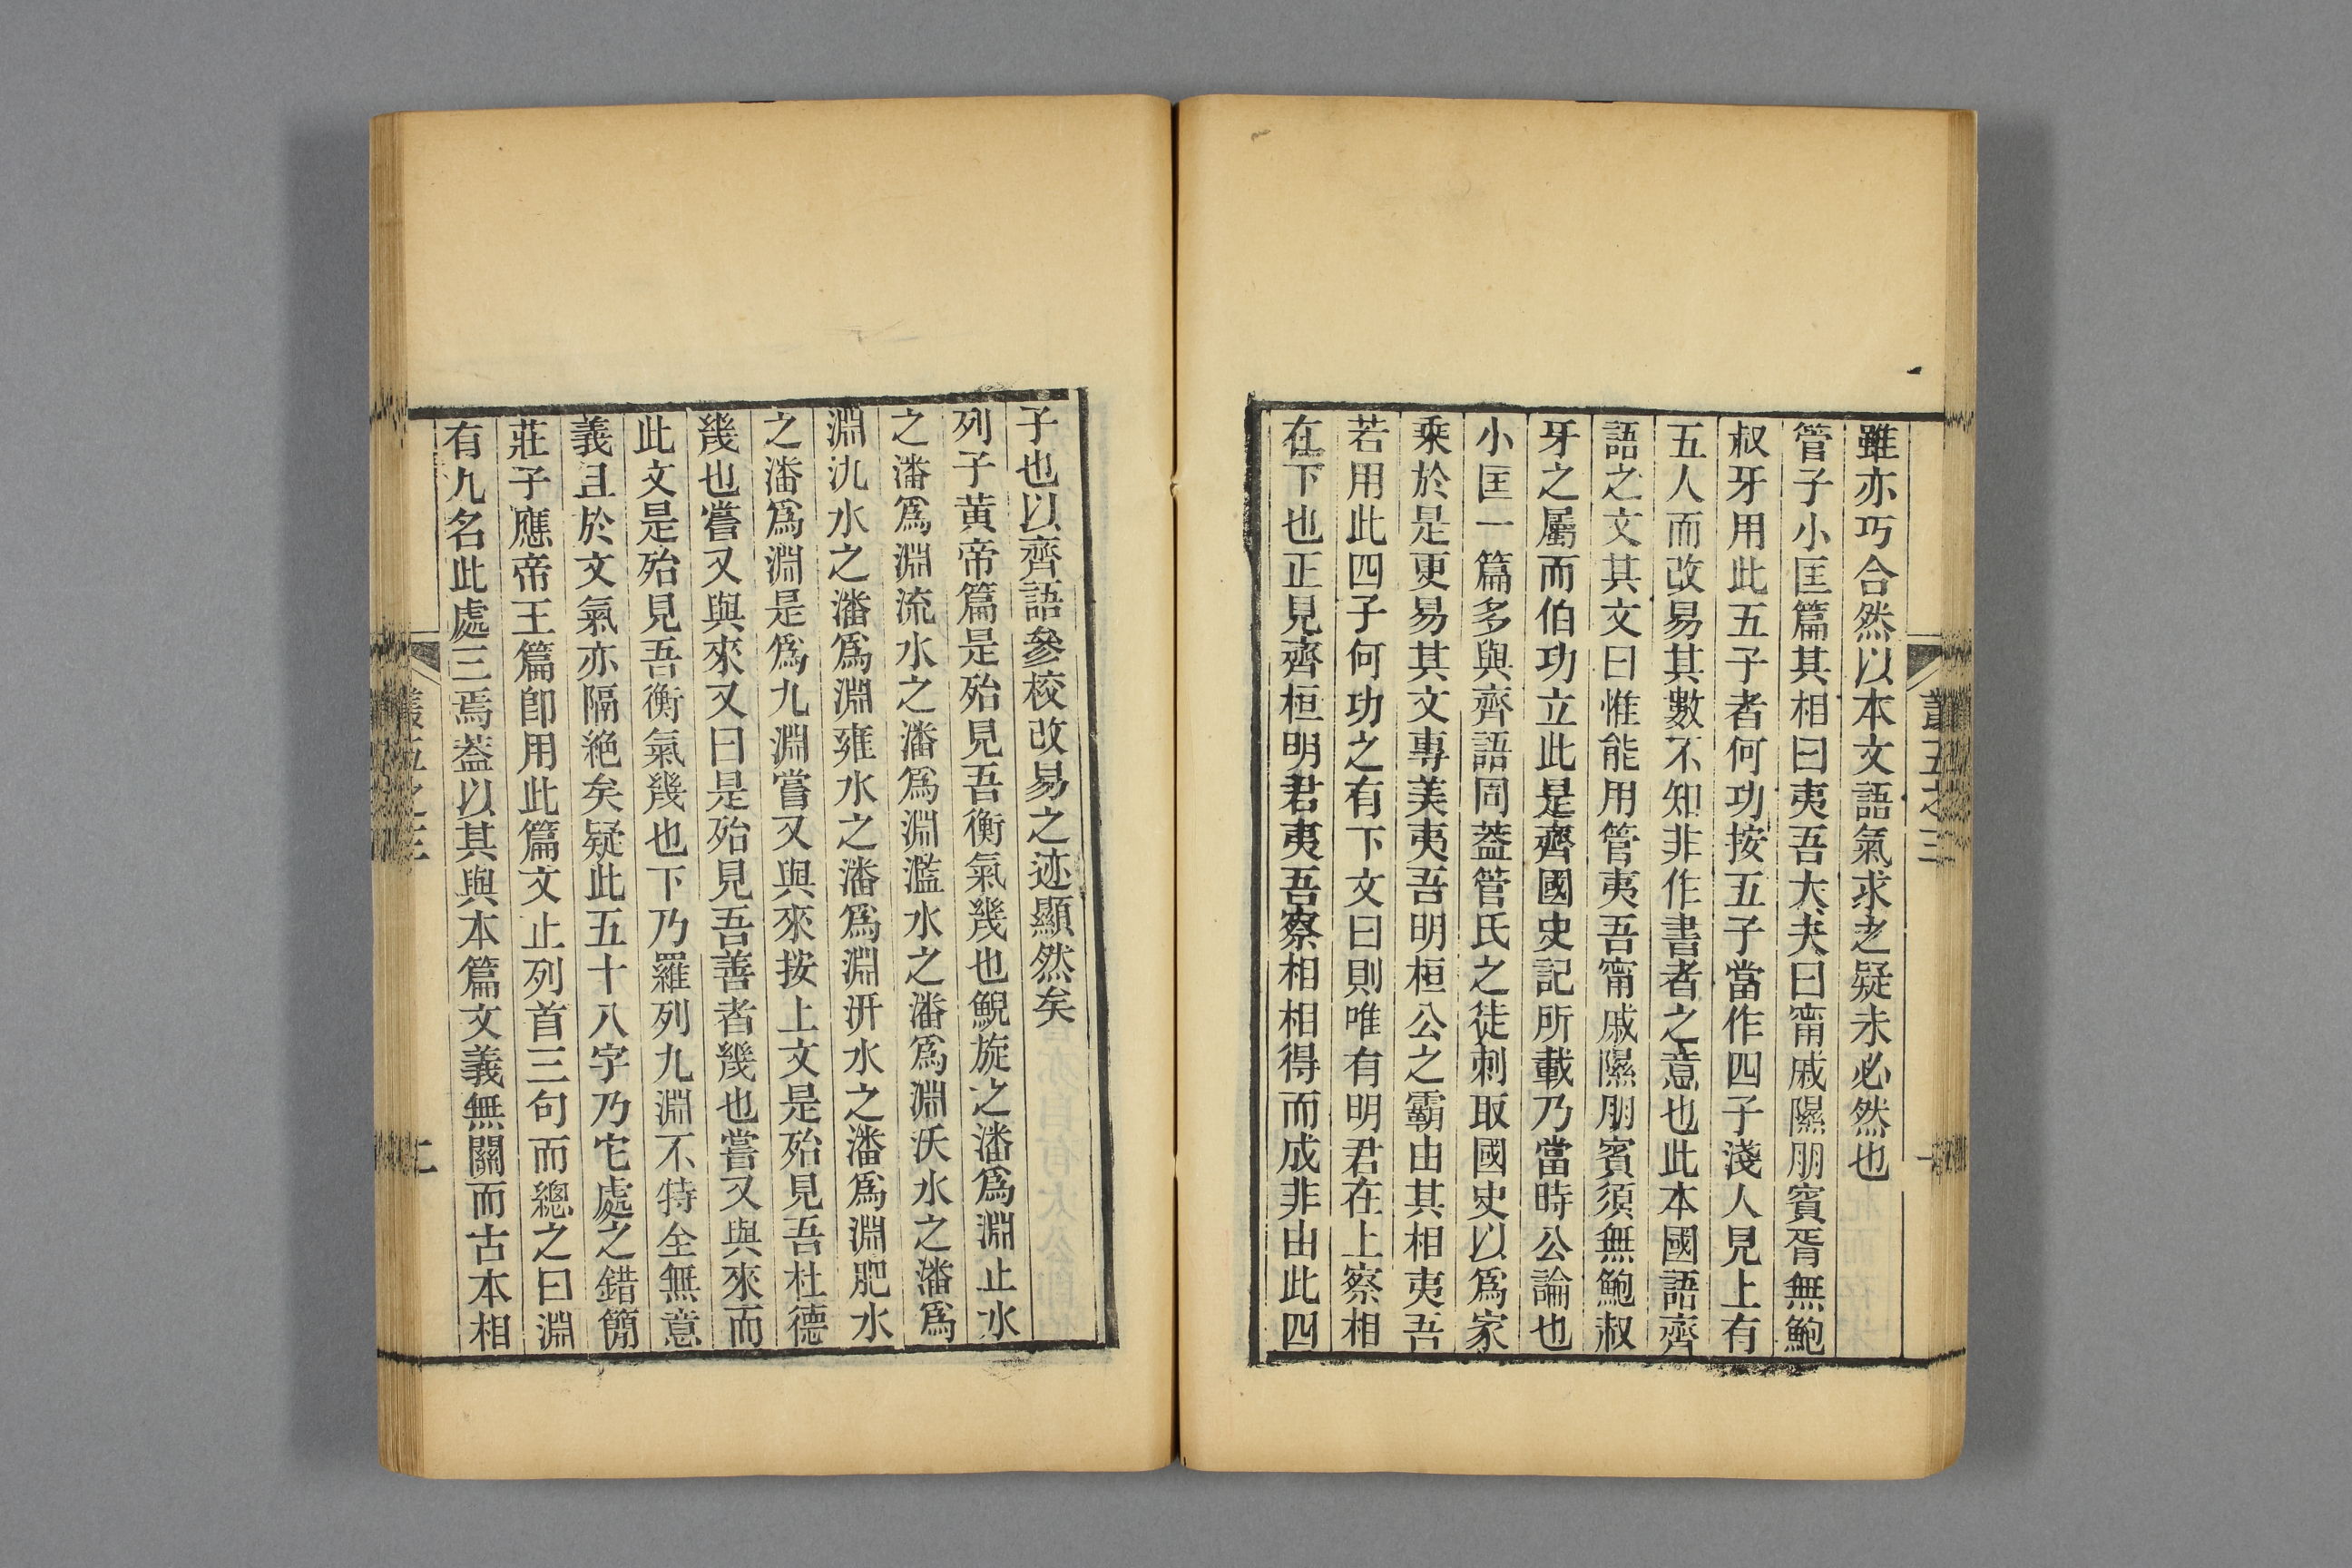 雖亦巧合然以本文語氣求之疑未必然也
管子小匡篇其相曰夷吾大夫曰甯戚隰朋賓胥無鮑
叔牙用此五子者何功按五子當作四子淺人見上有
五人而改易其數不知非作書者之意也此本國語齊
語之文其文曰惟能用管夷吾甯戚隰朋賓須無鮑叔
牙之屬而伯功立此是齊國史記所載乃當時公論也
小匡一篇多與齊語同葢管氏之徒刺取國史以爲家
乘於是更易其文專美夷吾明桓公之霸由其相夷吾
若用此四子何功之有下文曰則唯有明君在上察相
在下也正見齊桓明君夷吾察相相得而成非由此四
子也以齊語參校改易之迹顯然矣
列子黄帝篇是殆見吾衡氣幾也鯢旋之潘爲淵止水
之潘爲淵流水之潘爲淵濫水之潘爲淵沃水之潘爲
淵氿水之潘爲淵雍水之潘爲淵汧水之潘爲淵肥水
之潘爲淵是爲九淵嘗又與來按上文是殆見吾杜德
幾也嘗又與來又曰是殆見吾善者幾也嘗又與來而
此文是殆見吾衡氣幾也下乃羅列九淵不特全無意
義且於文氣亦隔絶矣疑此五十八字乃它處之錯簡
莊子應帝王篇卽用此篇文止列首三句而總之曰淵
有九名此處三焉葢以其與本篇文義無關而古本相
叢五之三